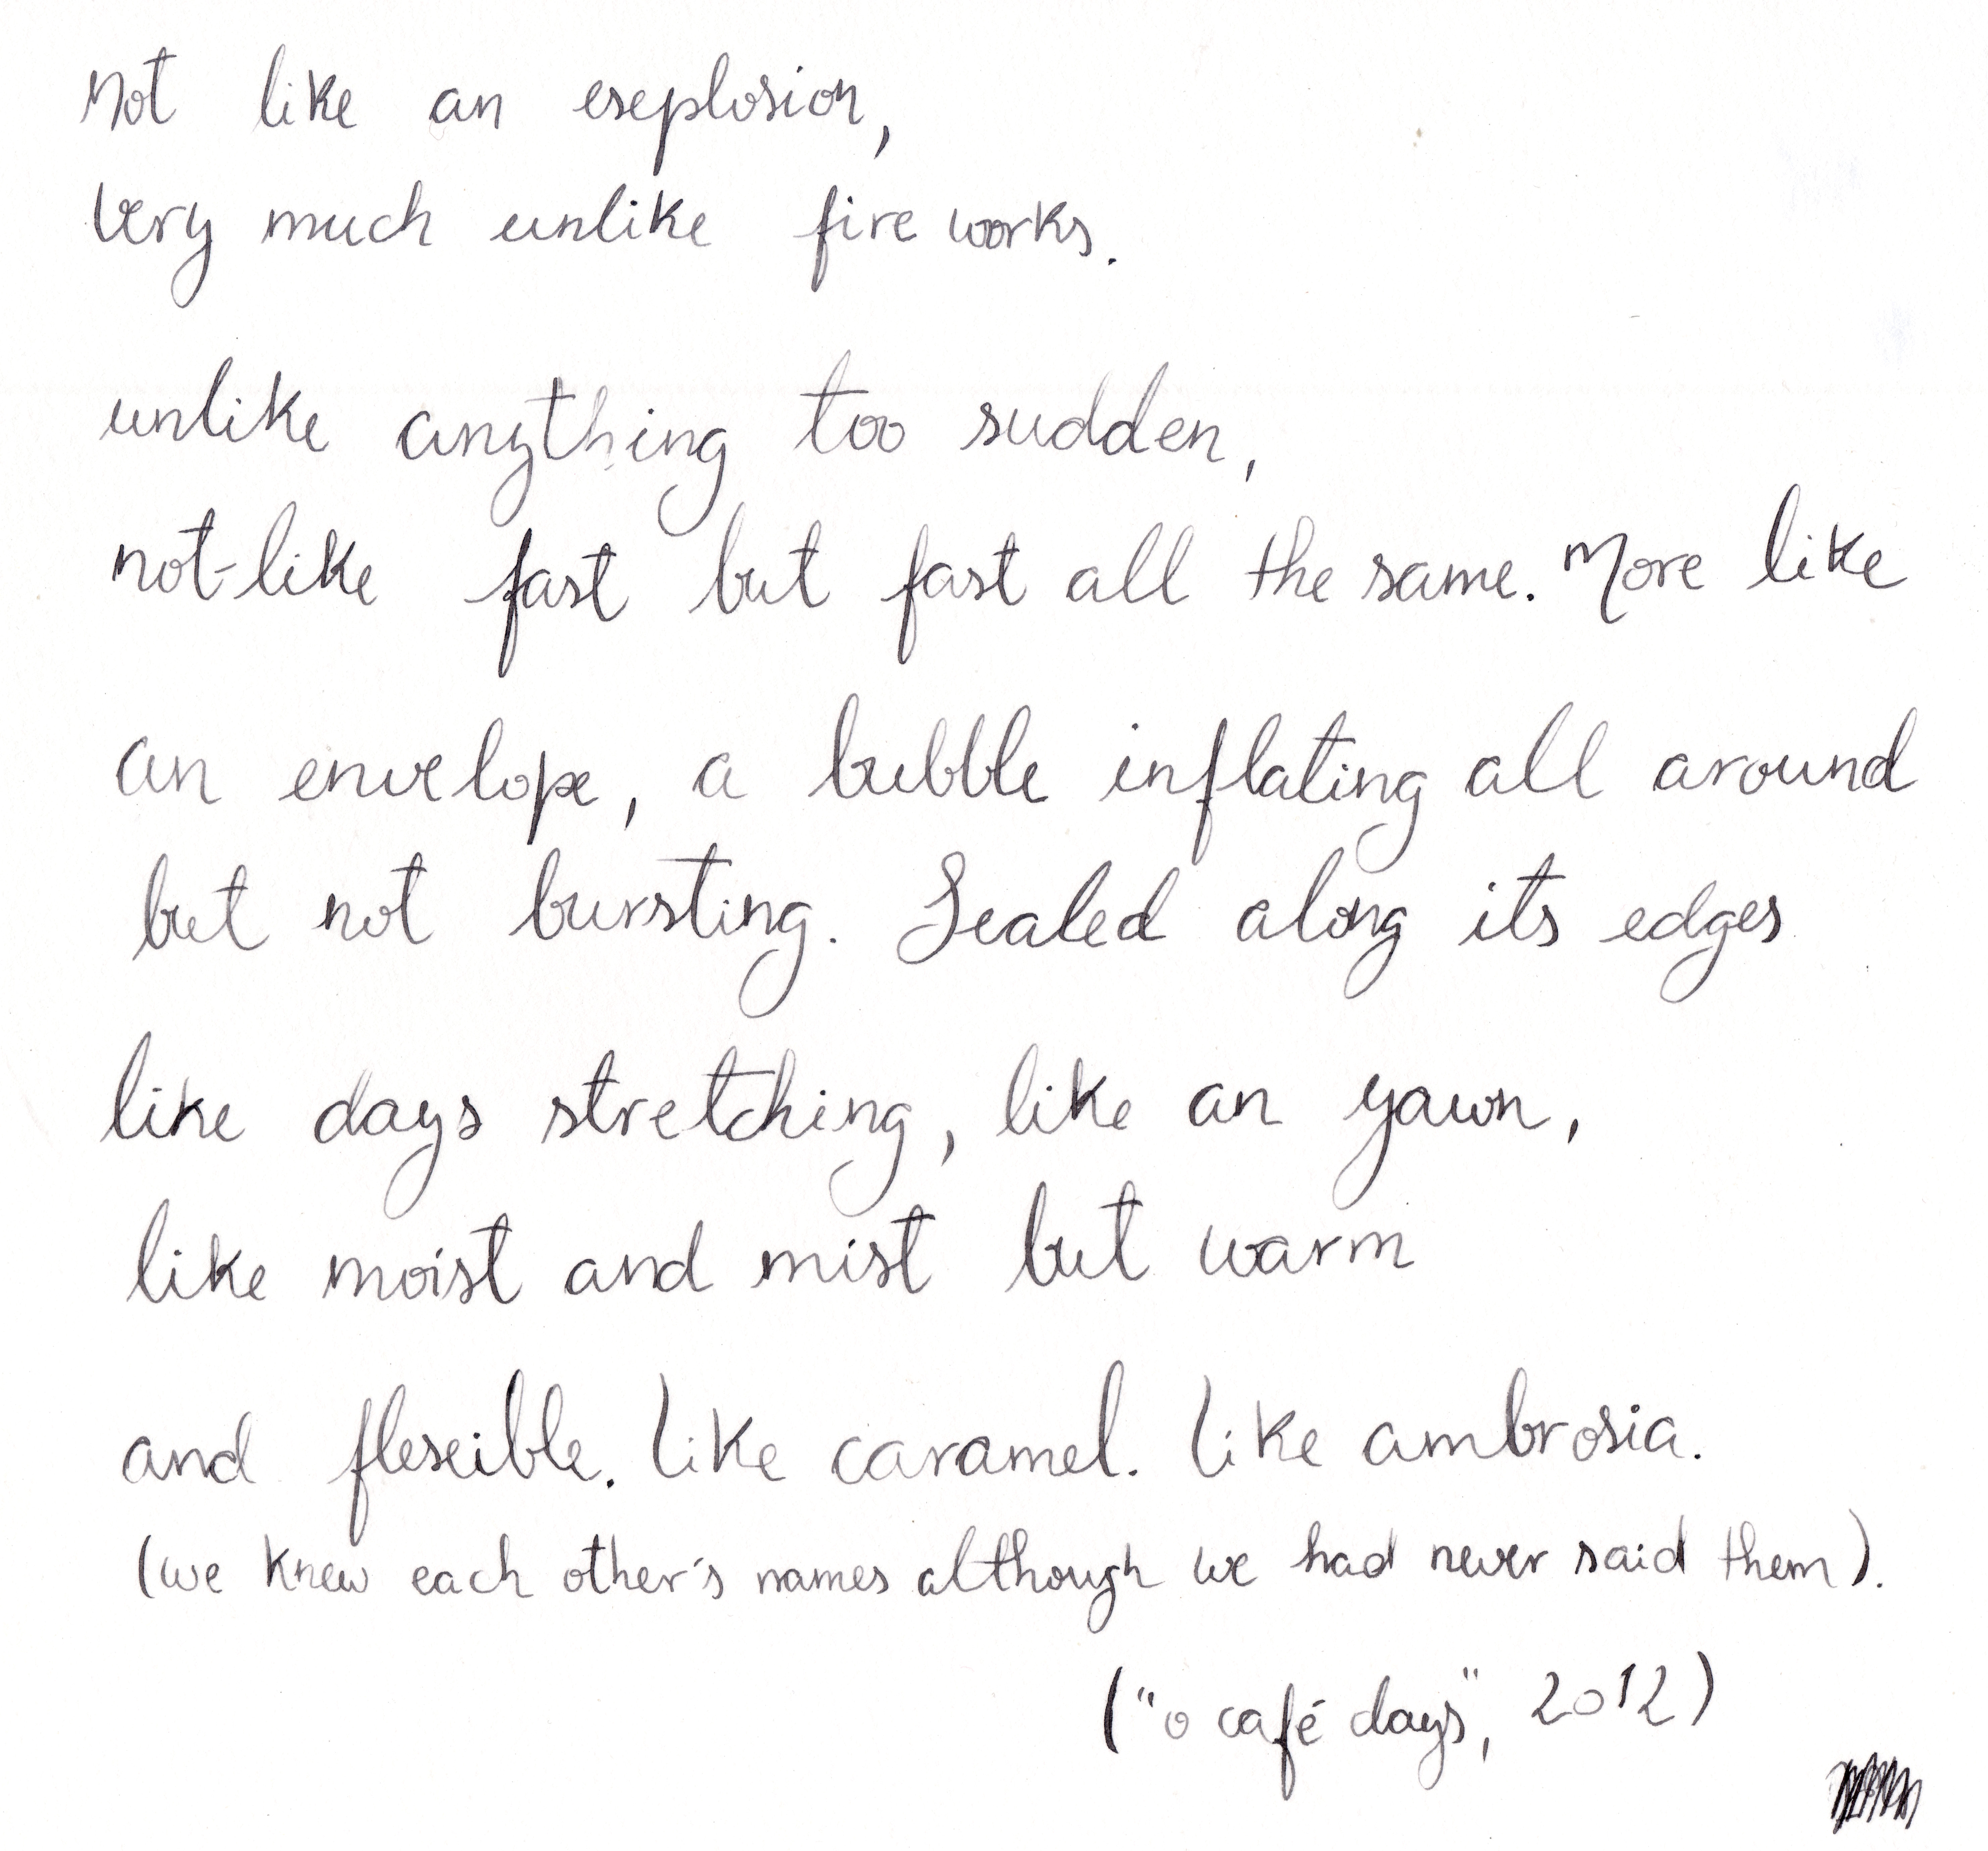 Not like an explosion,
Very much unlike fire works.
unlike anything too sudden,
not-like fast but fast all the same. More like
an envelope, a bubble inflating all around
but not bursting. Sealed along its edges
like days stretching, like an yawn,
like moist and mist but warm
and flexible. Like caramel. Like ambrosia.
(we knew each other's names although we had never said them).
("o café days", 2012)